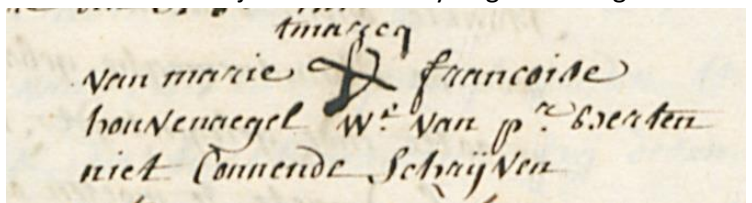 tmarcq
van marie francoise
houvenaegel We van pr baerten
niet Connende Schrijven